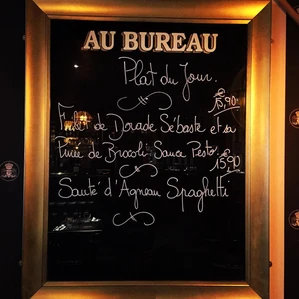 AU BUREAU
Plat du Jour.
15,90
Filet de Dorade Sébaste et sa
Purée de Brocoli Sauce Pesto
15,90
Sauté d'Agneau Spaghetti